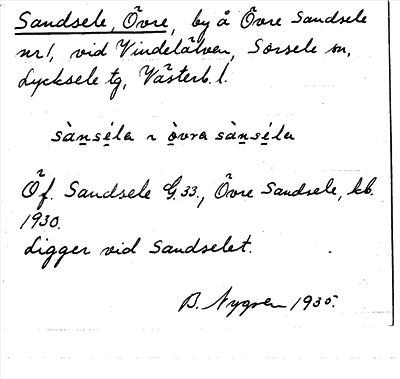 Sandsele, Övre, by å Övre Sandsele
nr 1, vid Vindelälven, Sorsele sn,
Lycksele tg, Västerb. l.
sànséla ~ òvra sànséla
Öf. Sandsele G. 33., Övre Sandsele, kb.
1930.
Ligger vid Sandselet.
B. Nygren 1935.